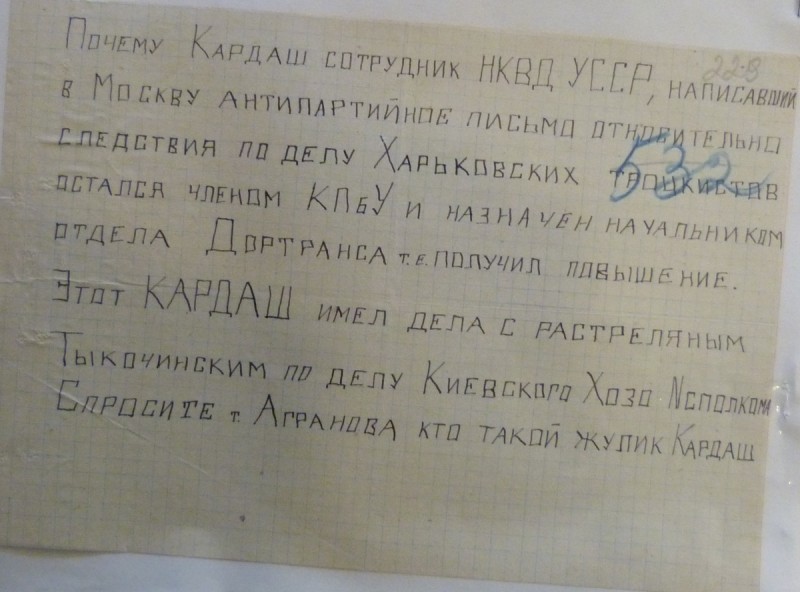 22-В
Почему Кардаш сотрудник НКВД УССР, написавший
в Москву антипартийное письмо относительно
532
следствия по делу Харьковских троцкистов
остался членом КПбУ и назначен начальником
отдела Дортранса т.е. получил повышение.
Этот КАРДАШ имел дела с растреляным
Тыкочинским по делу Киевского Хозо Исполкома
Спросите т. Агранова кто такой жулик Кардаш